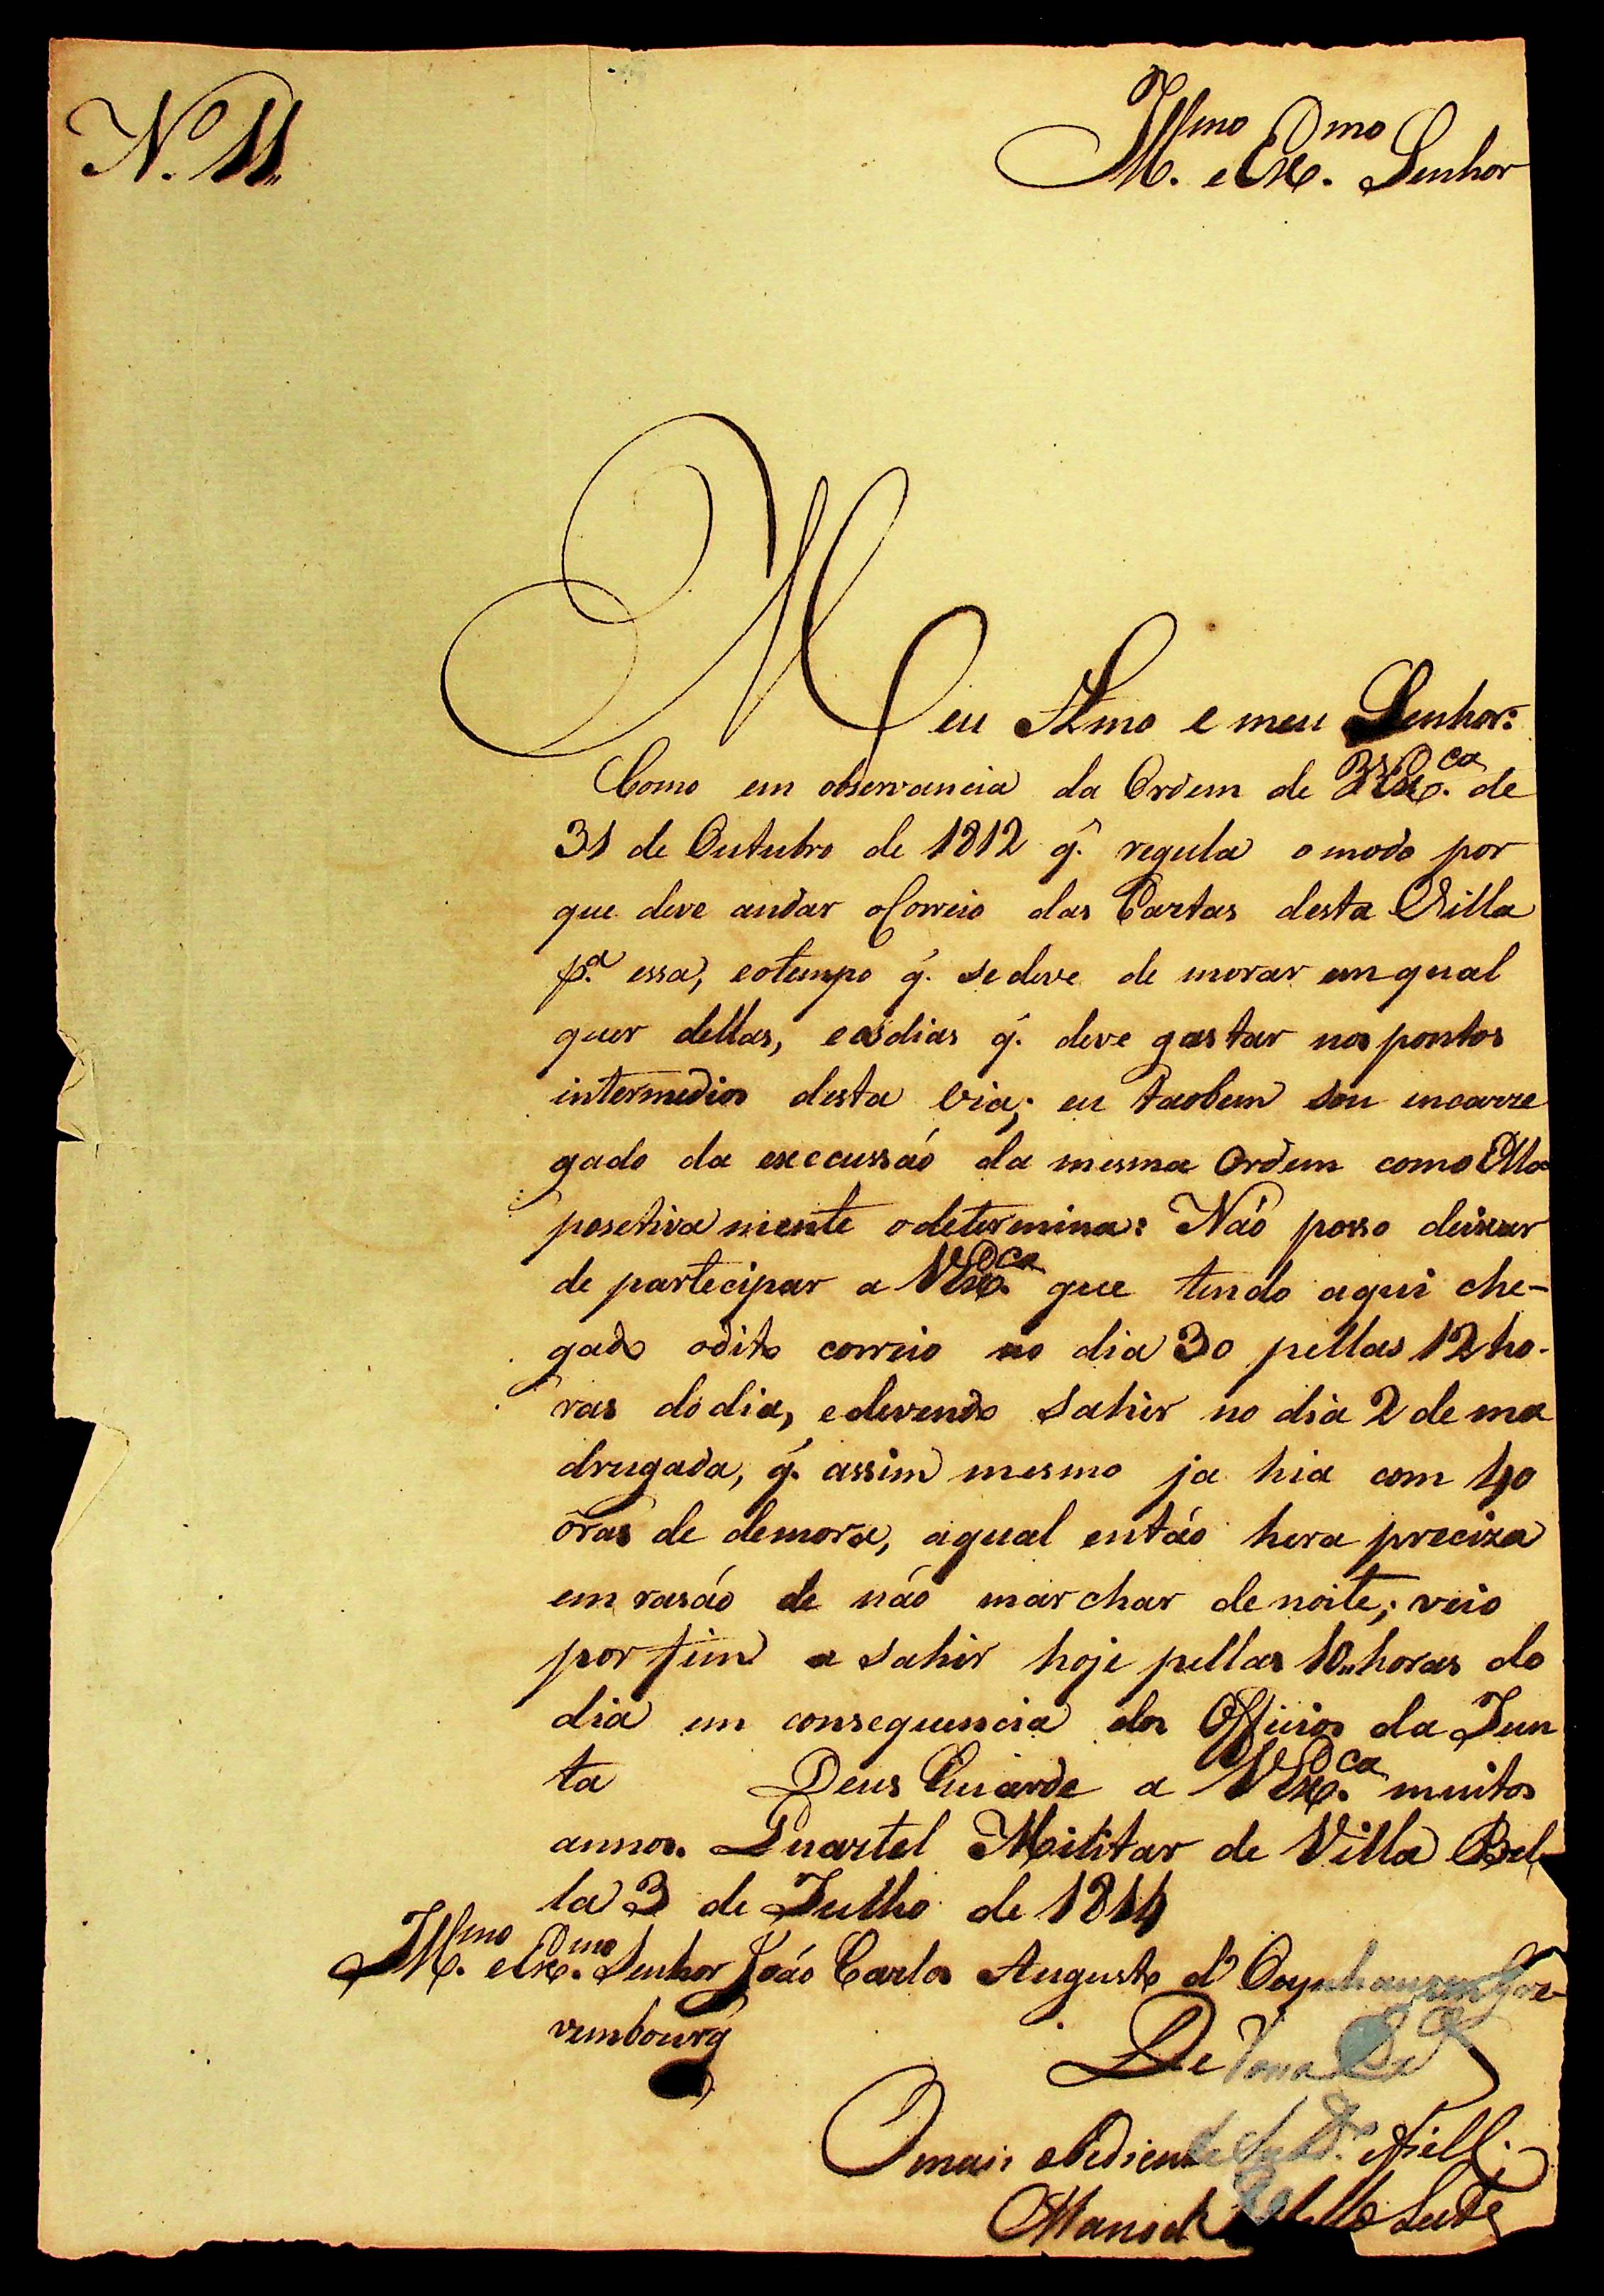 N.º 11
Ill.mo e Ex.mo Senhor
Meu Amo e meu Senhor:
Como em observancia da Ordem de VEx.ca de
31 de Outubro de 1812 q̃. regula omodo por
que deve andar oCorreio das Cartas desta Villa
p.a essa, eotempo q̃. sedeve de morar em qual
quer dellas, eosdias q̃. deve gastar nos pontos
intermedios desta via; eu taobem sou encarre
gado da execcussáó da mesma Ordem como Ella
posetiva mente odetermina: Náó posso deixar
de partecipar a VEx.ca que tendo aqui che-
gado odito correio no dia 30 pellas 12 ho-
ras dodia, edevendo sahir no dia 2 de ma
drugada, q̃. assim mesmo ja hia com 40
óras de demora, aqual entáó hera preciza
em rasáó de náó marchar de noite; veio
por fim a sahir hoje pellas 10,, horas do
dia em consequencia dos Officios da Jun
ta Deus Guarde a VEx.ca muitos
annos. Quartel Militar de Villa Bel
la 3 de Julho de 1814
Ill.mo e Ex.mo Senhor Joáó Carlos Augusto d'Oeynhausen Gre
vembourg
De
O mais obediente efiell.
Manoel